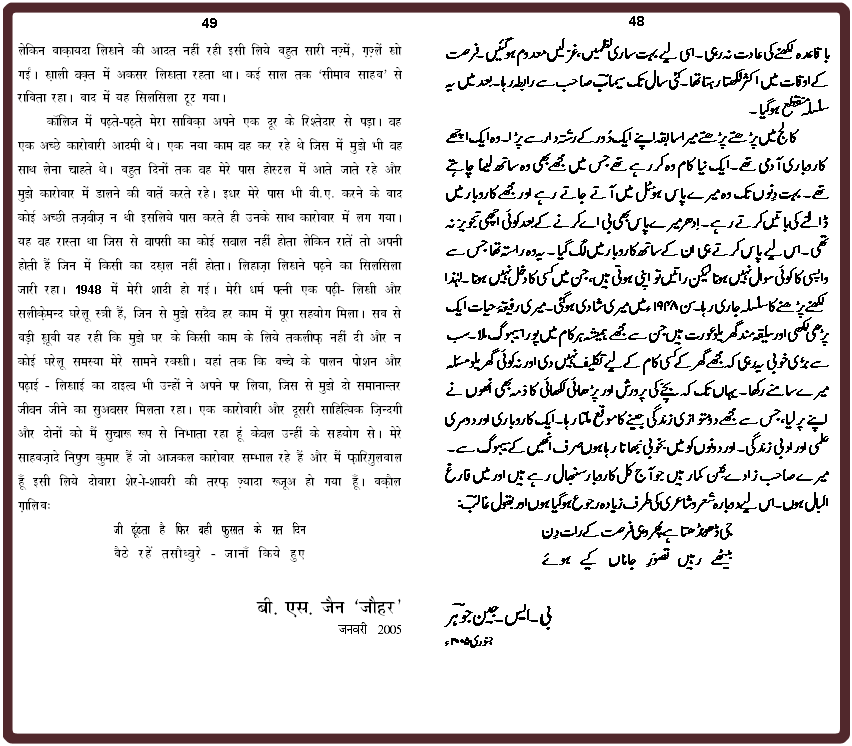 49
लेकिन वाक़ायदा लिखने की आदत नहीं रही इसी लिये बहुत सारी नज़्में, ग़ज़्लें खो
गईं। ख़ाली वक़्त में अकसर लिखता रहता था। कई साल तक ‘सीमाब साहब’ से
राबिता रहा। बाद में यह सिलसिला टूट गया।
कॉलिज में पढ़ते-पढ़ते मेरा साबिक़ा अपने एक दूर के रिश्तेदार से पड़ा। वह
एक अच्छे कारोबारी आदमी थे। एक नया काम वह कर रहे थे जिस में मुझे भी वह
साथ लेना चाहते थे। बहुत दिनों तक वह मेरे पास होस्टल में आते जाते रहे और
मुझे कारोबार में डालने की बातें करते रहे। इधर मेरे पास भी बी.ए. करने के बाद
कोई अच्छी तजवीज़ न थी इसलिये पास करते ही उनके साथ कारोबार में लग गया।
यह वह रास्ता था जिस से वापसी का कोई सवाल नहीं होता लेकिन रातें तो अपनी
होती हैं जिन में किसी का दख़ल नहीं होता। लिहाज़ा लिखने पढ़ने का सिलसिला
जारी रहा। 1948 में मेरी शादी हो गई। मेरी धर्म पत्नी एक पढ़ी- लिखी और
सलीक़ेमन्द घरेलू स्त्री हैं, जिन से मुझे सदैव हर काम में पूरा सहयोग मिला। सब से
बड़ी ख़ूबी यह रही कि मुझे घर के किसी काम के लिये तकलीफ़ नहीं दी और न
कोई घरेलू समस्या मेरे सामने रक्खी। यहां तक कि बच्चे के पालन पोशन और
पढ़ाई - लिखाई का दाइत्व भी उन्होंने अपने पर लिया, जिस से मुझे दो समानान्तर
जीवन जीने का सुअवसर मिलता रहा। एक कारोबारी और दूसरी साहित्यिक ज़िन्दगी
और दोनों को मैं सुचारू रूप से निभाता रहा हूं केवल उन्हीं के सहयोग से। मेरे
साहबज़ादे निपुण कुमार हैं जो आजकल कारोबार सम्भाल रहे हैं और मैं फ़ारिग़ुलबाल
हूँ इसी लिये दोबारा शेर-ो-शायरी की तरफ़ ज़्यादा रुजूअ हो गया हूँ। बक़ौल
ग़ालिबः
जी ढूंढता है फिर वही फ़ुरसत के रात दिन
बैठे रहें तसौव्वुरे - जानाँ किये हुए
बी. एस. जैन ‘जौहर’
जनवरी 2005
48
باقاعدہ لکھنے کی عادت نہ رہی۔ اسی لیے بہت ساری نظمیں، غزلیں معدوم ہوگئیں۔ فرصت
کے اوقات میں اکثر لکھتا رہتا تھا۔ کئی سال تک سیمابؔ صاحب سے رابطہ رہا۔ بعد میں یہ
سلسلہ منقطع ہوگیا۔
کالج میں پڑھتے پڑھتے میرا سابقہ اپنے ایک دُور کے رشتہ دار سے پڑا۔ وہ ایک اچھے
کاروباری آدمی تھے۔ ایک نیا کام وہ کر رہے تھے جس میں مجھے بھی وہ ساتھ لینا چاہتے
تھے۔ بہت دِنوں تک وہ میرے پاس ہوٹل میں آتے جاتے رہے اور مجھے کاروبار میں
ڈالنے کی باتیں کرتے رہے۔ اِدھر میرے پاس بھی بی اے کرنے کے بعد کوئی اچھی تجویز نہ
تھی۔ اس لیے پاس کرتے ہی ان کے ساتھ کاروبار میں لگ گیا۔ یہ وہ راستہ تھا جس سے
واپسی کا کوئی سوال نہیں ہوتا لیکن راتیں تو اپنی ہوتی ہیں، جن میں کسی کا دخل نہیں ہوتا۔ لہٰذا
لکھنے پڑھنے کا سلسلہ جاری رہا۔ سن ۱۹۴۸ء میں میری شادی ہوگئی۔ میری رفیقۂ حیات ایک
پڑھی لکھی اور سلیقہ مند گھریلو عورت ہیں جن سے مجھے ہمیشہ ہر کام میں پورا سہیوگ ملا۔ سب
سے بڑی خوبی یہ رہی کہ مجھے گھر کے کسی کام کے لیے تکلیف نہیں دی اور نہ کوئی گھریلو مسئلہ
میرے سامنے رکھا۔ یہاں تک کہ بچے کی پرورش اور پڑھائی لکھائی کا ذمہ بھی اُنھوں نے
اپنے پر لیا، جس سے مجھے دو متوازی زندگی جینے کا موقع ملتا رہا۔ ایک کاروباری اور دوسری
علمی اور ادبی زندگی۔ اور دونوں کو میں بخوبی نبھاتا رہا ہوں صرف انھیں کے سہیوگ سے۔
میرے صاحب زادے نپن کمار ہیں جو آج کل کاروبار سنبھال رہے ہیں اور میں فارغ
البال ہوں۔ اس لیے دوبارہ شعر و شاعری کی طرف زیادہ رجوع ہوگیا ہوں اور بقول غالبؔ:
جی ڈھونڈھتا ہے پھر وہی فرصت کے رات دِن
بیٹھے رہیں تصوّرِ جاناں کیے ہوئے
بی۔ ایس۔ جین جوہرؔ
جنوری ۲۰۰۵ء